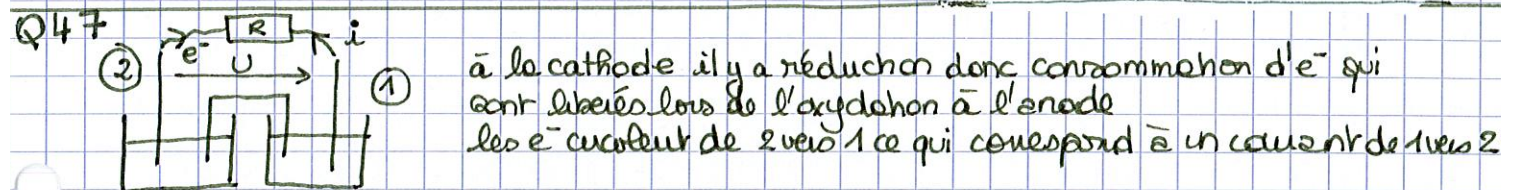 Q47
R
i
e⁻
U
②
①
à la cathode il y a réduction donc consommation d'e⁻ qui
sont libérés lors de l'oxydation à l'anode
les e⁻ circulent de 2 vers 1 ce qui correspond à un courant de 1 vers 2